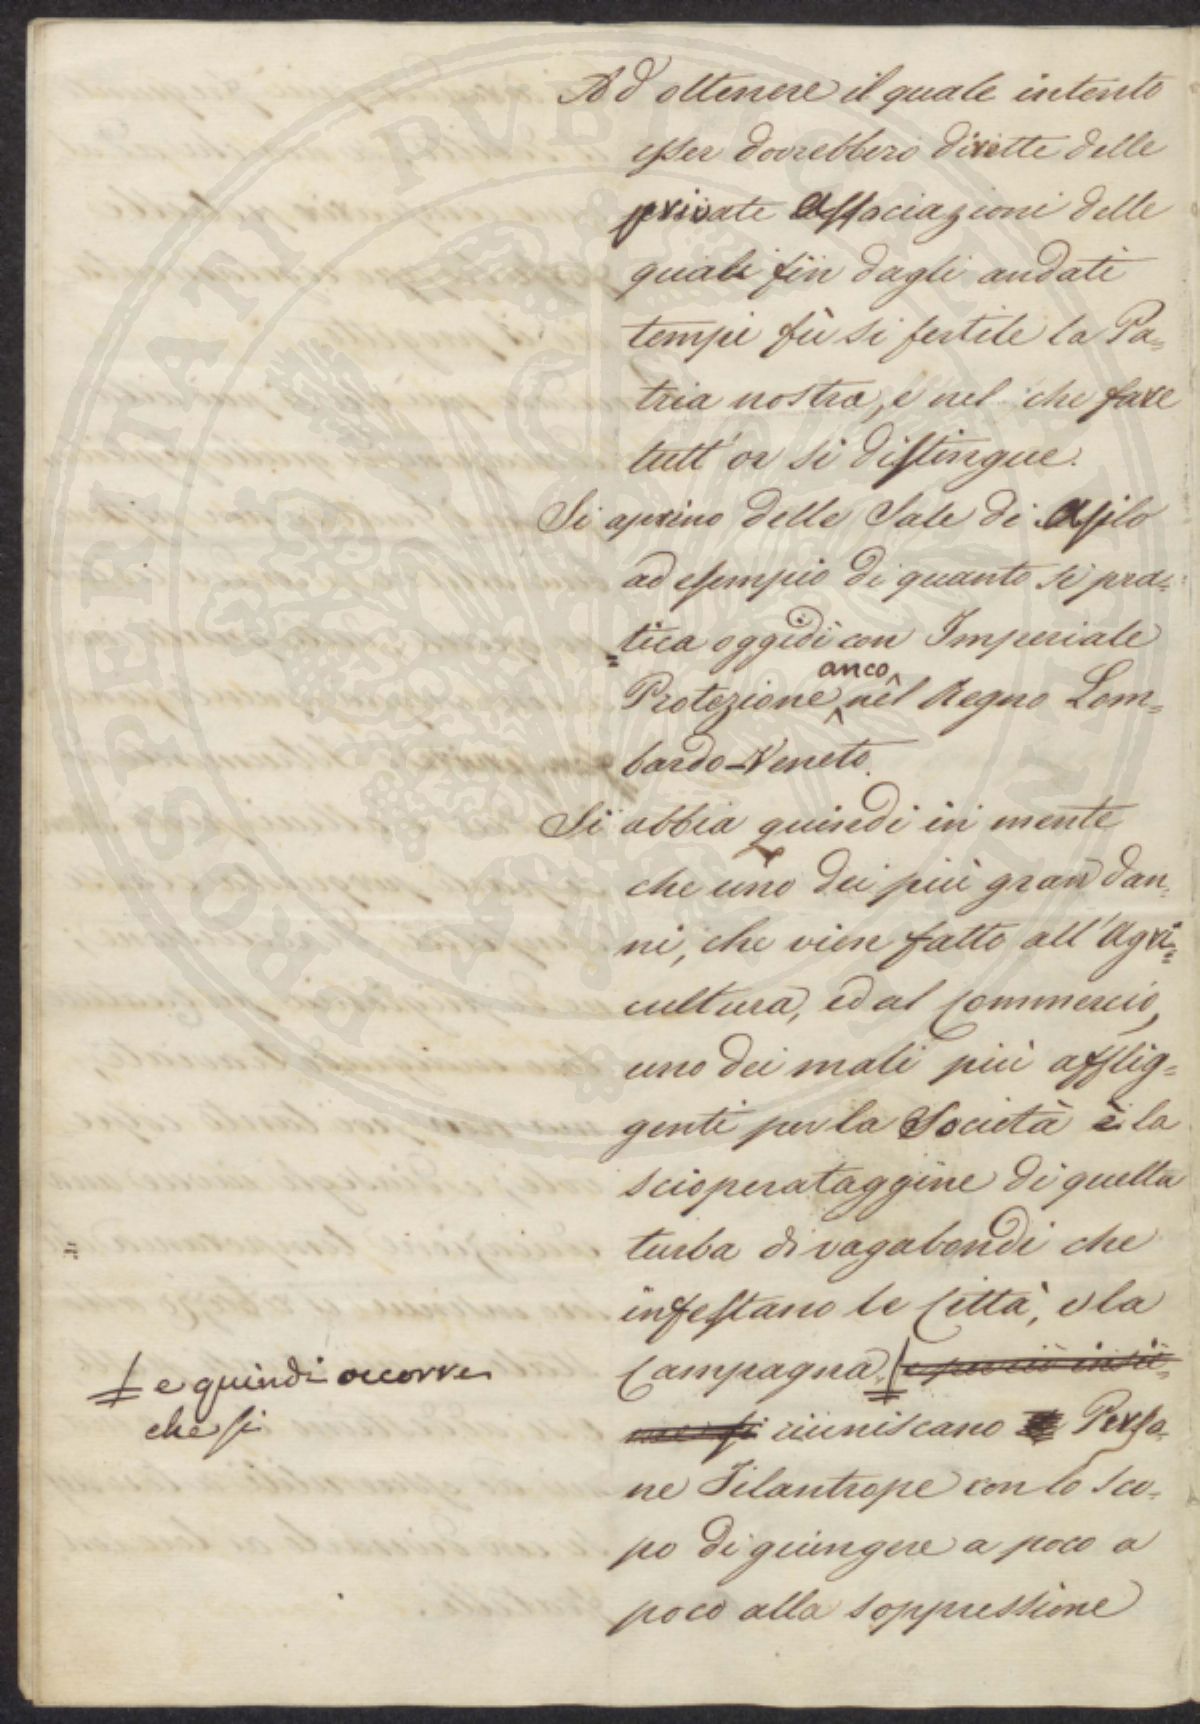 Ad ottenere il quale intento
esser dovrebbero dirette delle
private Associazioni delle
quali fin dagli andati
tempi fù si fertile la Pa=
tria nostra, e nel che fare
tutt'or si distingue.
Si aprino delle Sale di Asilo
ad esempio di quanto si pra=
=tica oggidì con Imperiale
anco
Protezione nel Regno Lom=
bardo-Veneto.
Si abbia quindi in mente
che uno dei più gran dan=
ni, che vien fatto all'Agri=
cultura, ed al Commercio,
uno dei mali più afflig=
genti per la Società è la
scioperataggine di quella
turba di vagabondi che
infestano le Città, e la
Campagna, e perciò insie=
me si riuniscano Perso=
ne Filantrope con lo sco=
po di giungere a poco a
poco alla soppressione
e quindi occorre
che si
PROSPERITATI PUBLICAE